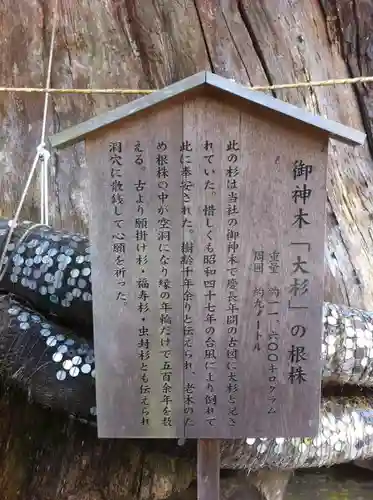 御神木「大杉」の根株
重量 約一一、六〇〇キログラム
周囲 約九メートル
此の杉は当社の御神木で慶長年間の古図に大杉と記さ
れていた。惜しくも昭和四十七年の台風により倒れて
此に奉安された。樹齢千年余りと伝えられ、老木のた
め根株の中が空洞になり縁の年輪だけで五百余年を数
える。古より願掛け杉・福寿杉・虫封杉とも伝えられ
洞穴に散銭して心願を祈った。